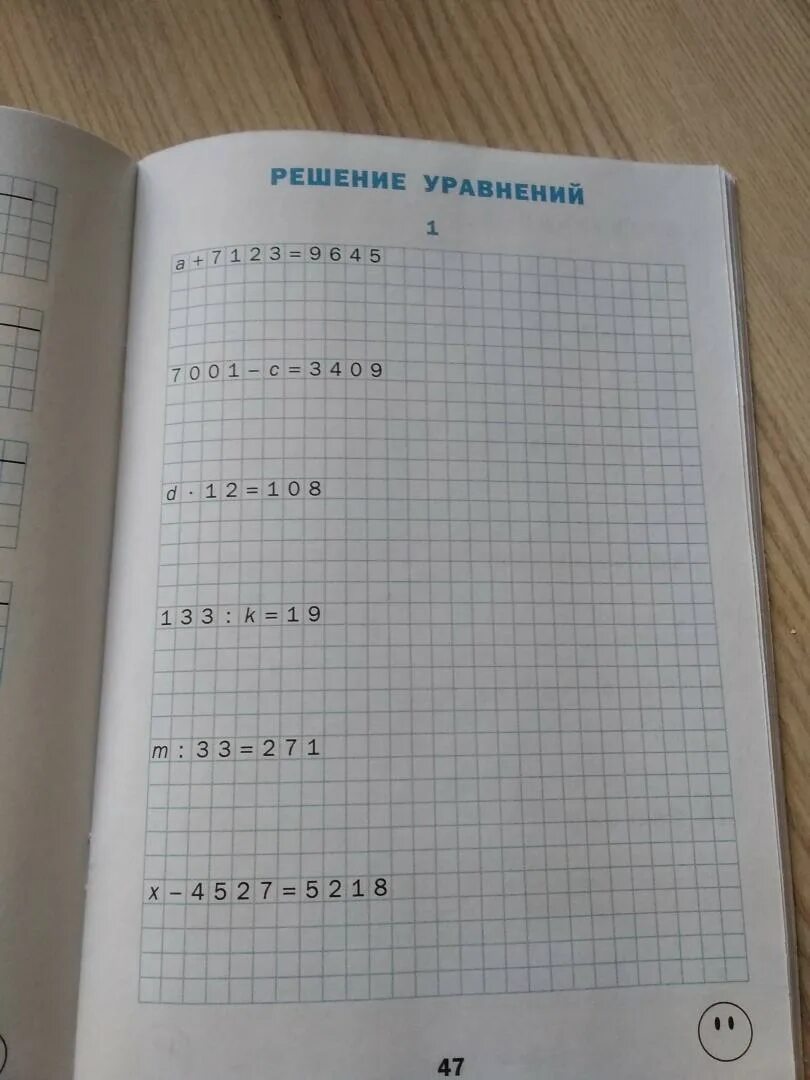 РЕШЕНИЕ УРАВНЕНИЙ
1
a + 7123 = 9645
7001 – c = 3409
d · 12 = 108
133 : k = 19
m : 33 = 271
x – 4527 = 5218
47